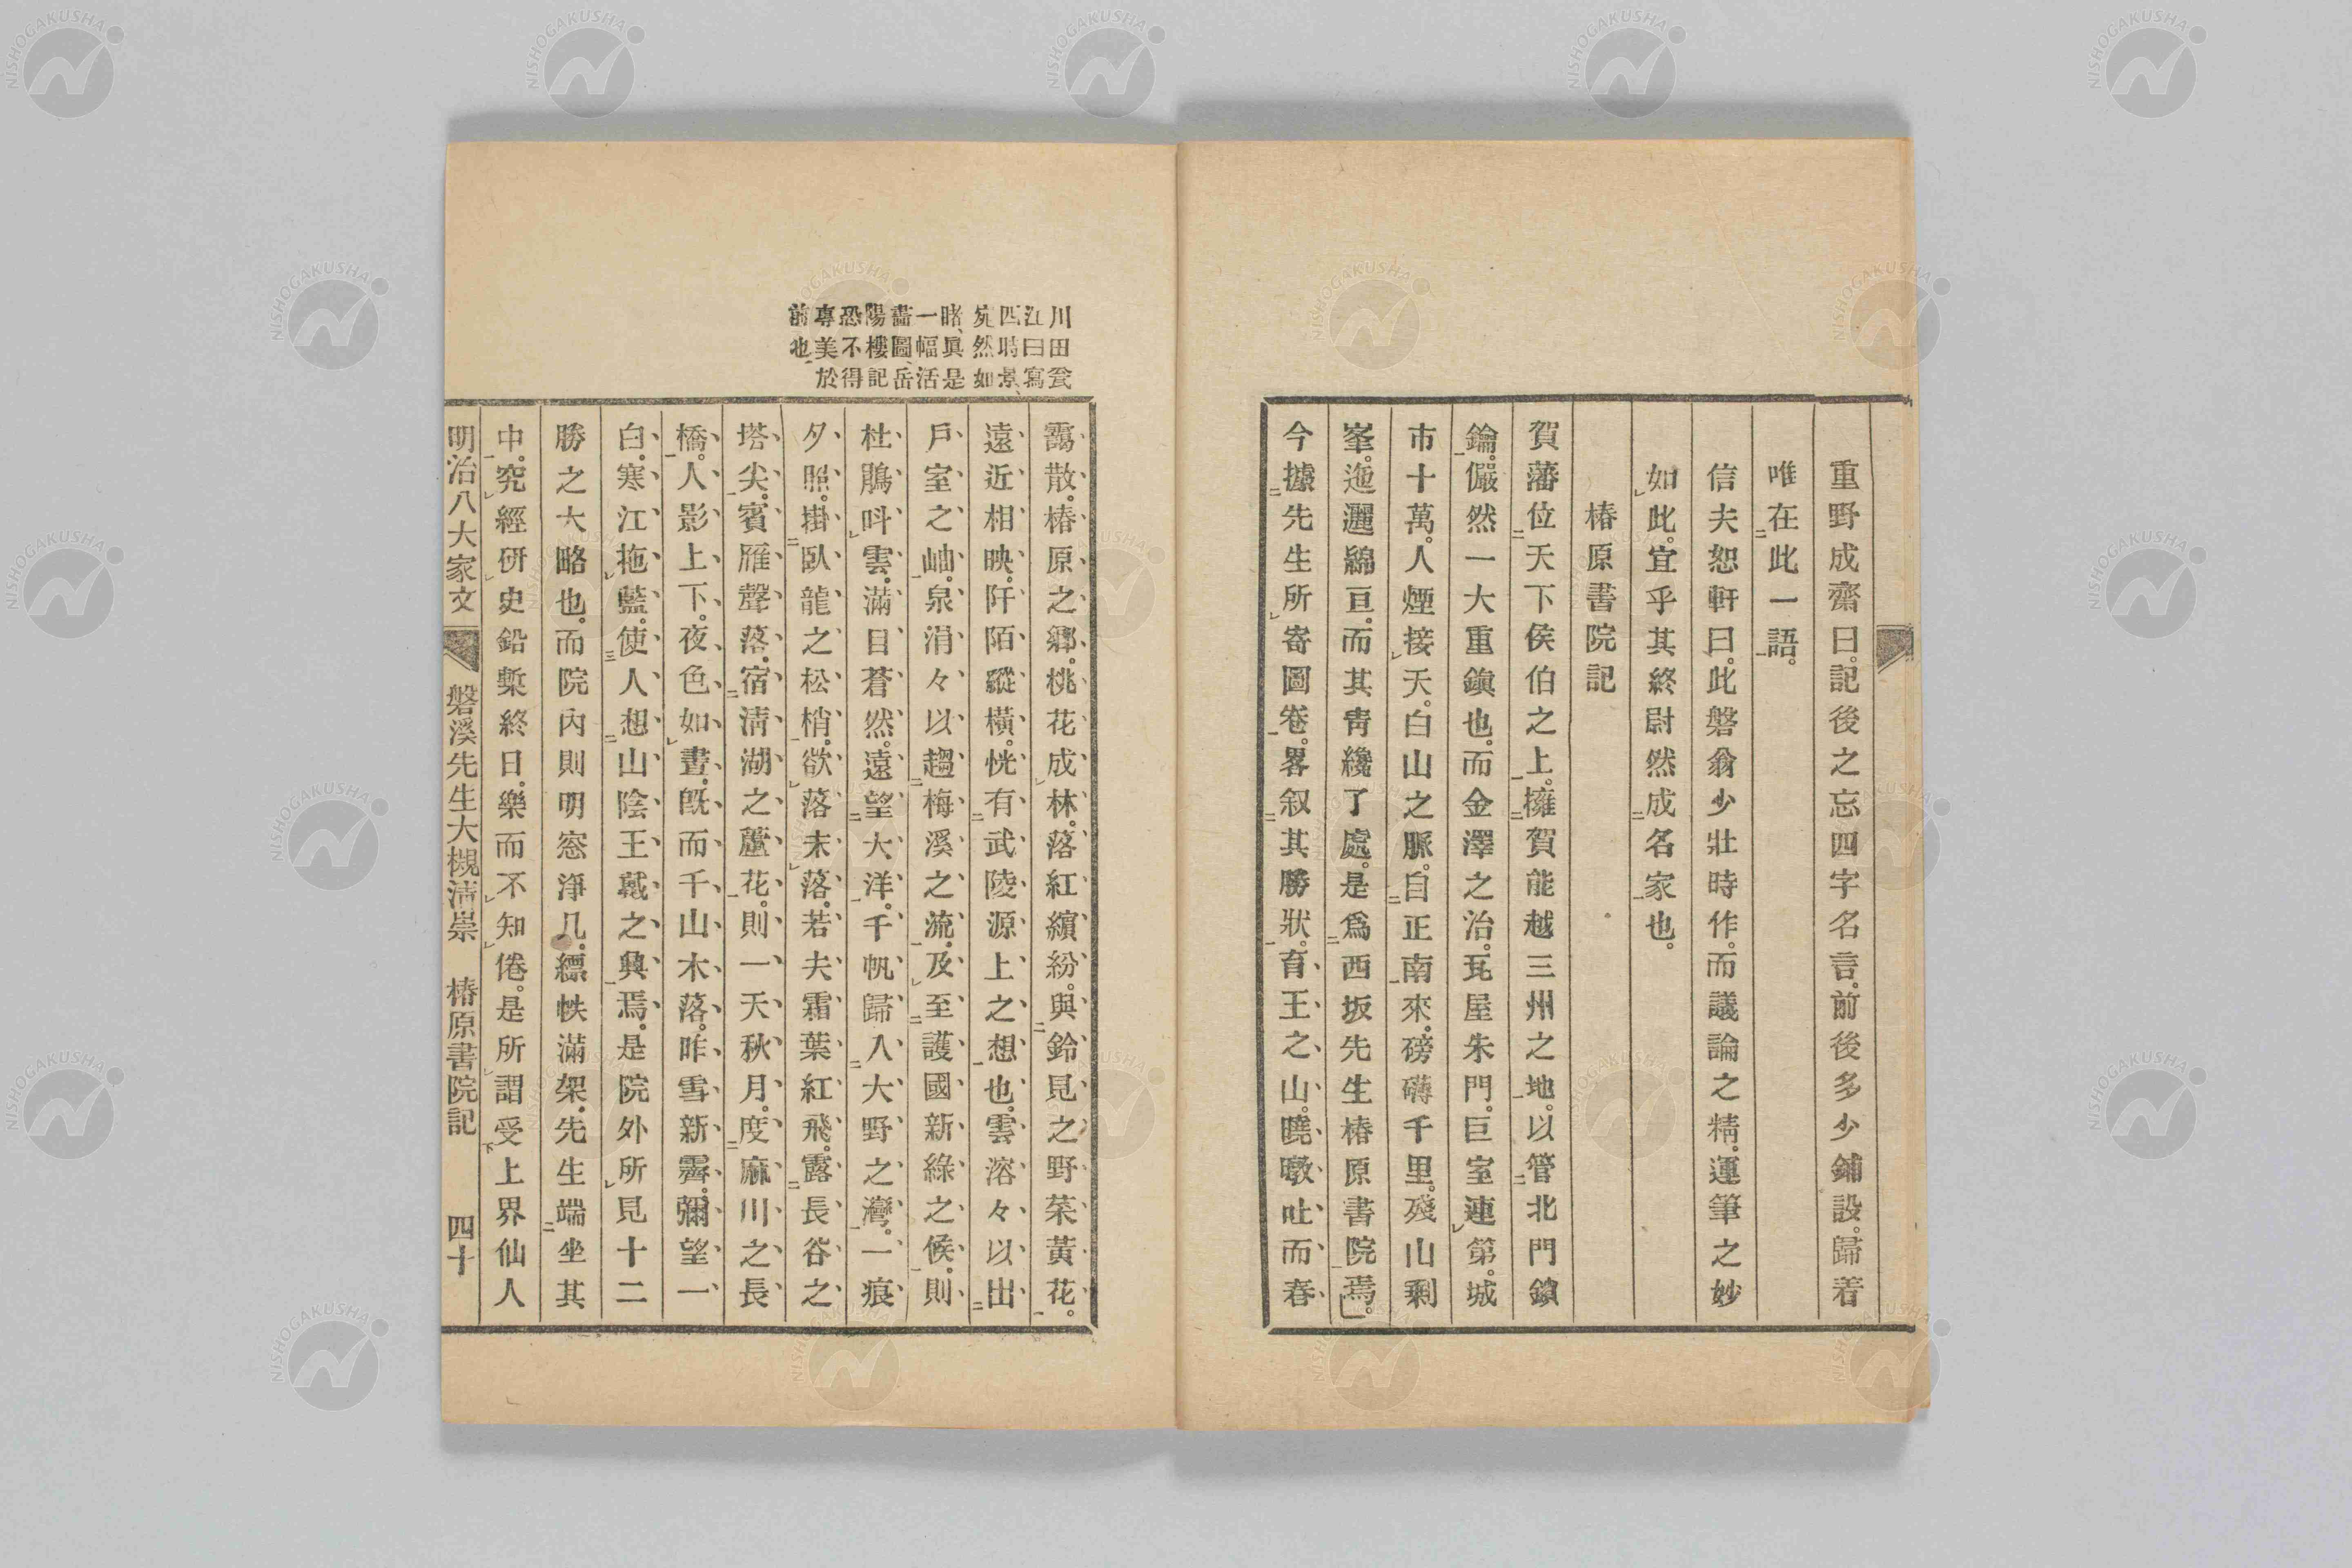 重野成齋曰。記後之忘四字名言。前後多少鋪設。歸着
唯在此一語。
信夫恕軒曰。此磐翁少壯時作。而議論之精。運筆之妙
如此。宜乎其終尉然成名家也。
椿原書院記
賀藩位天下侯伯之上。擁賀能越三州之地。以管北門鎖
鑰。儼然一大重鎮也。而金澤之治。瓦屋朱門。巨室連第。城
市十萬。人煙接天。白山之脈。自正南來。磅礴千里。殘山剩
峯。迤邐綿亘。而其靑纔了處。是爲西坂先生椿原書院焉。
今據先生所寄圖卷。畧叙其勝狀。育王之山。曉暾吐而春
靄散。椿原之鄉。桃花成林。落紅繽紛。與鈴見之野菜黃花。
遠近相映。阡陌縱橫。恍有武陵源上之想也。雲溶々以出
戶室之岫。泉涓々以趨梅溪之流。及至護國新綠之候。則
杜鵑呌雲。滿目蒼然。遠望大洋。千帆歸入大野之灣。一痕
夕照。掛臥龍之松梢。欲落未落。若夫霜葉紅飛。露長谷之
塔尖。賓雁聲落。宿淸湖之蘆花。則一天秋月。度麻川之長
橋。人影上下。夜色如晝。旣而千山木落。昨雪新霽。彌望一
白。寒江拖藍。使人想山陰王戴之興焉。是院外所見十二
勝之大略也。而院內則明窓淨几。縹帙滿架。先生端坐其
中。究經研史鉛槧終日。樂而不知倦。是所謂受上界仙人
川田甕
江曰寫
四時景、
宛然如
睹、眞是
一幅活
畵圖、岳
陽樓記
恐不得
專美於
前也、
明治八大家文 磐溪先生大槻淸崇 椿原書院記 四十
NISHOGAKUSHA